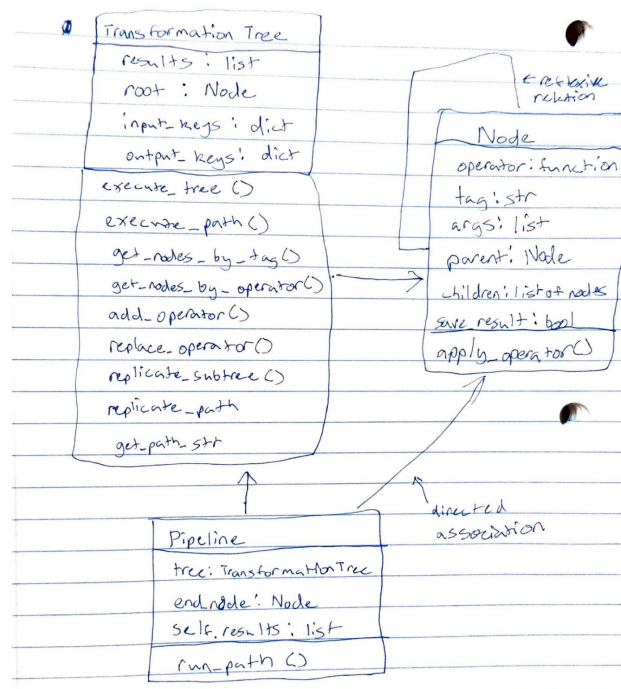 Transformation Tree
results : list
root : Node
input_keys : dict
output_keys : dict
execute_tree ()
execute_path ()
get_nodes_by_tag()
get_nodes_by_operator()
add_operator()
replace_operator()
replicate_subtree()
replicate_path
get_path_str
← reflexive
relation
Node
operator: function
tag: str
args: list
parent: Node
children: list of nodes
save_result: bool
apply_operator()
directed
association
Pipeline
tree: TransformationTree
end_node: Node
self.results : list
run_path ()